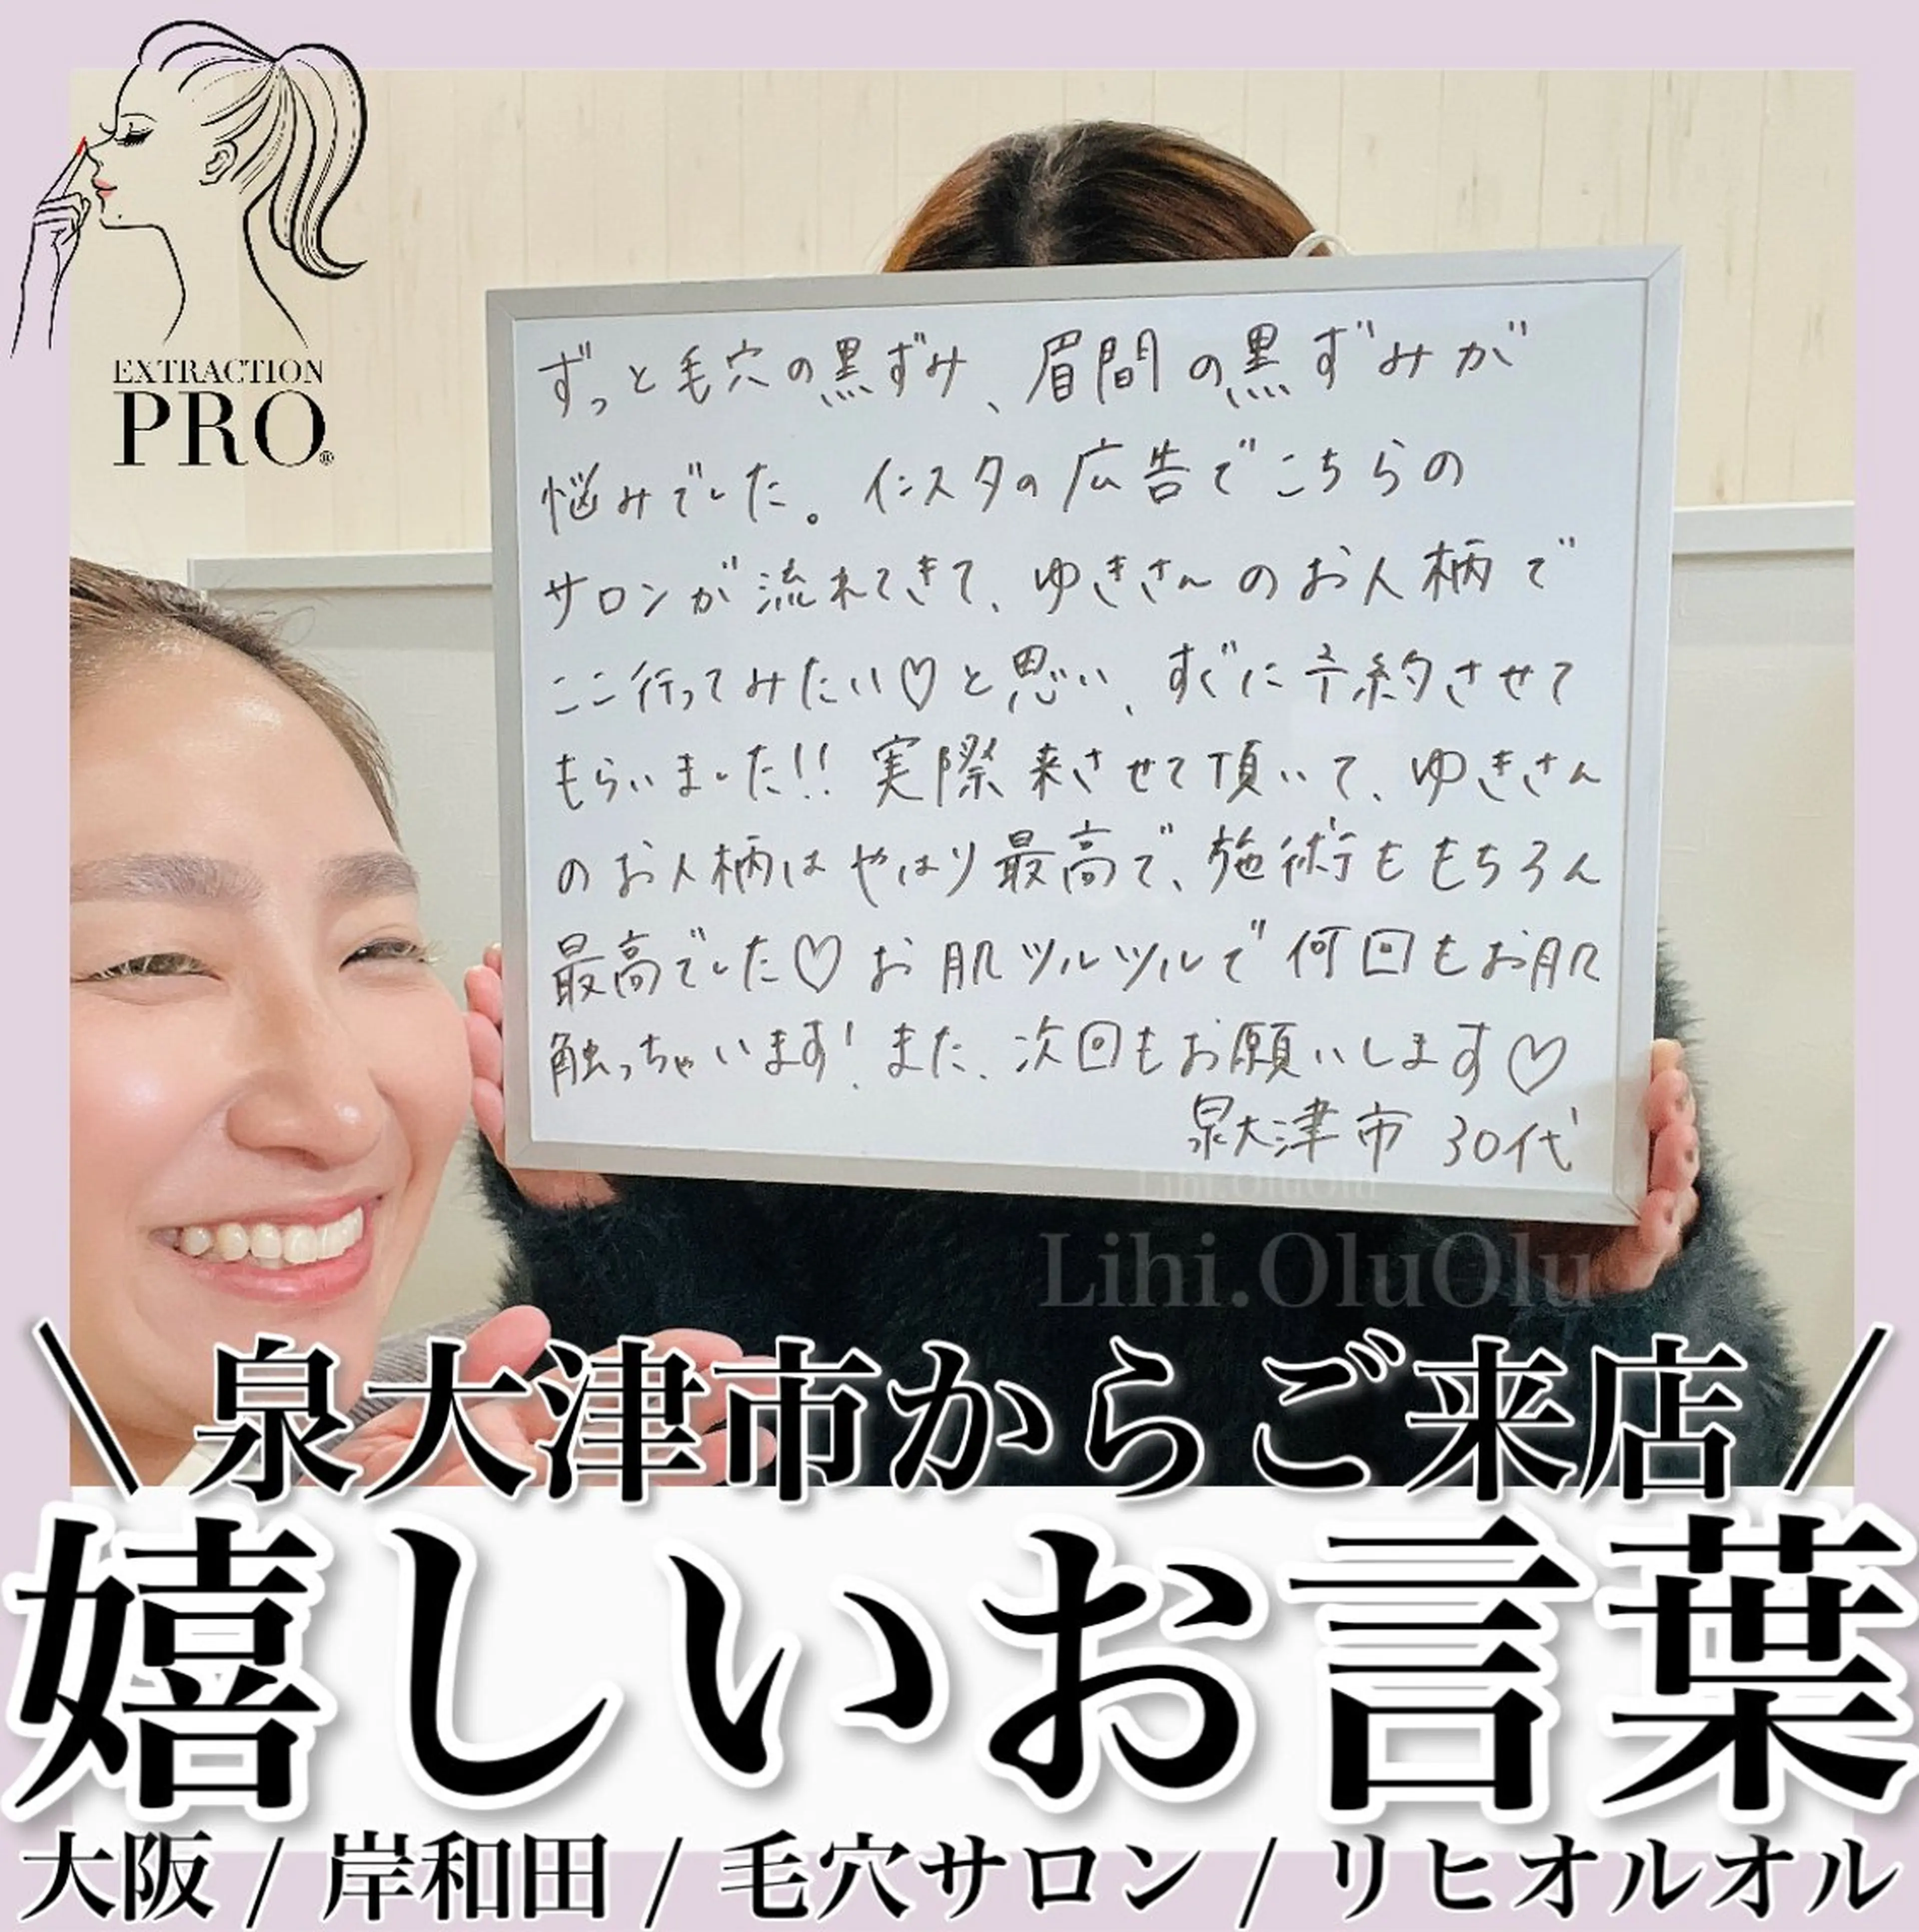 EXTRACTION
PRO®
ずっと毛穴の黒ずみ、眉間の黒ずみが
悩みでした。インスタの広告でこちらの
サロンが流れてきて、ゆきさんのお人柄で
ここ行ってみたい♡と思い、すぐに予約させて
もらいました!! 実際来させて頂いて、ゆきさん
のお人柄はやはり最高で、施術ももちろん
最高でした♡お肌ツルツルで何回もお肌
触っちゃいます! また、次回もお願いします♡
泉大津市 30代
Lihi.OluOlu
Lihi.OluOlu
\ 泉大津市からご来店 /
嬉しいお言葉
大阪 / 岸和田 / 毛穴サロン / リヒオルオル